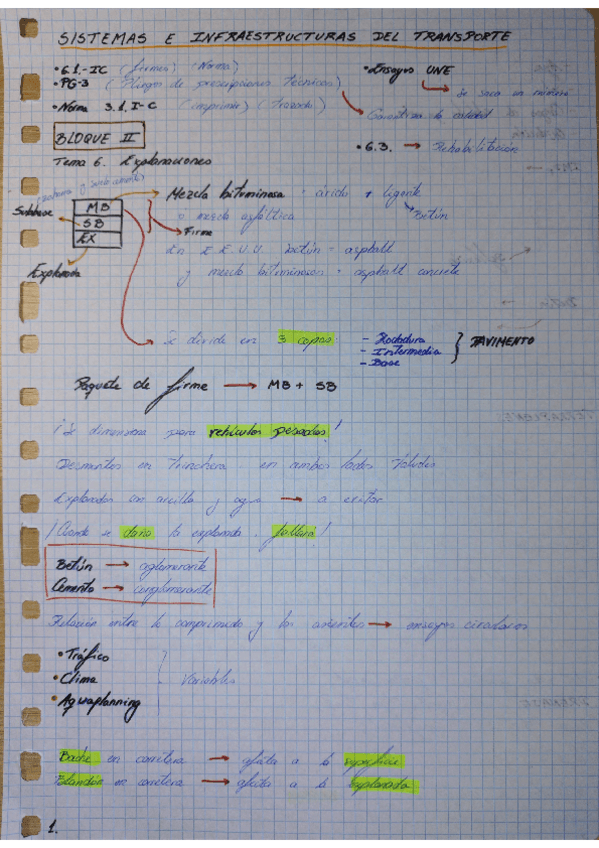 SISTEMAS E INFRAESTRUCTURAS DEL TRANSPORTE
• 6.1.-IC (firmes) (Norma)
• PG-3 (Pliegos de prescripciones técnicas)
• Norma 3.1. I-C (imprimir) (trazado)
• Ensayos UNE
se saca un número
Garantiza la calidad
• 6.3. → Rehabilitación
BLOQUE II
Tema 6. Explanaciones
Subbase
MB
SB
EX
Explanada
Firme
Mezcla bituminosa = árido + ligante
Betún
o mezcla asfáltica
En E.E.U.U. betún = asphalt
y mezcla bituminosa = asphalt concrete
Se divide en 3 capas:
- Rodadura
- Intermedia
- Base
PAVIMENTO
Paquete de firme → MB + SB
¡Se dimensiona para vehículos pesados!
Desmontes en trinchera en ambos lados taludes
Explanadas con arcilla y agua → a evitar
¡Cuando se daña la explanada,
Betún → aglomerante
Cemento → conglomerante
Relación entre lo comprimido y los
→ ensayos
• Tráfico
• Clima
• Aquaplanning
Variables
Bache en carretera → afecta a la superficie
Blandón en carretera → afecta a la explanada
1.